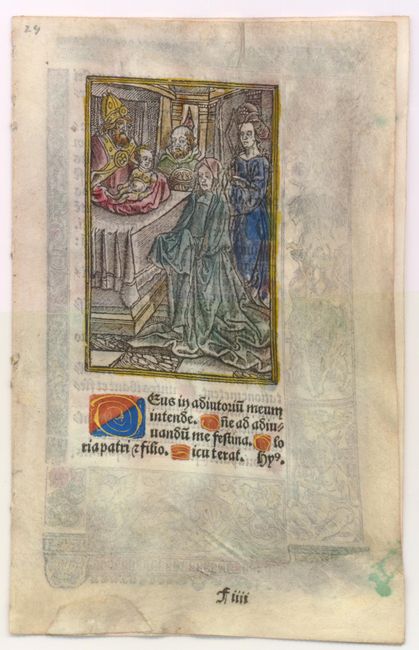 24
Deus in adiutoriū meum
intende. Dñe ad adiu-
uandū me festina. Glo
ria patri ⁊ filio. Sicut erat. Hyꝰ.
F iiii